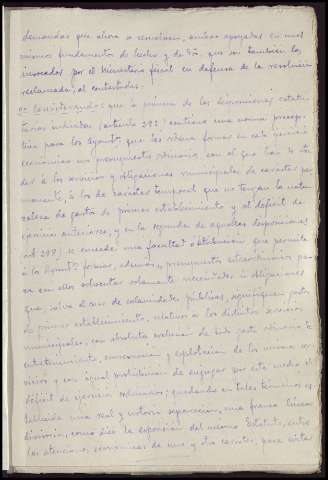 demandas que ahora se resuelven, ambas apoyadas en unos
mismos fundamentos de hecho y de Dº, que son también los
invocados por el Ministerio fiscal en defensa de la resolución
reclamada, al contestarlas:
Considerando: que la primera de las disposiciones estatu-
tarias indicadas (artículo 293) contiene una norma precep-
tiva para los Ayuntºs que les obliga formar en cada ejercicio
económico un presupuesto ordinario con el que han de aten-
der á los servicios y obligaciones municipales de carácter per-
manente, á los de carácter temporal que no tengan la natu-
raleza de gastos de primer establecimiento y al déficit de
ejercicios anteriores, y en la segunda de aquellas disposiciones
(artº 298) se concede una facultad o atribución que permite
á los Ayuntºs formar, además, presupuestos extraordinarios pa-
ra con ellos solventar solamente necesidades u obligaciones
que, salvo el caso de calamidades públicas, signifiquen gastos
de primer establecimiento, relativos a los distintos servicios
municipales, con absoluta exclusión de todo gasto ordinario de
entretenimiento, conservación y explotación de los mismos ser-
vicios y con igual prohibición de enjugar por este medio el
déficit de ejercicios ordinarios; quedando en tales términos es-
tablecida una real y notoria separación, una franca línea
divisoria, como dice la exposición del mismo Estatuto, entre
las atenciones económicas de uno y otro carácter, para evitar